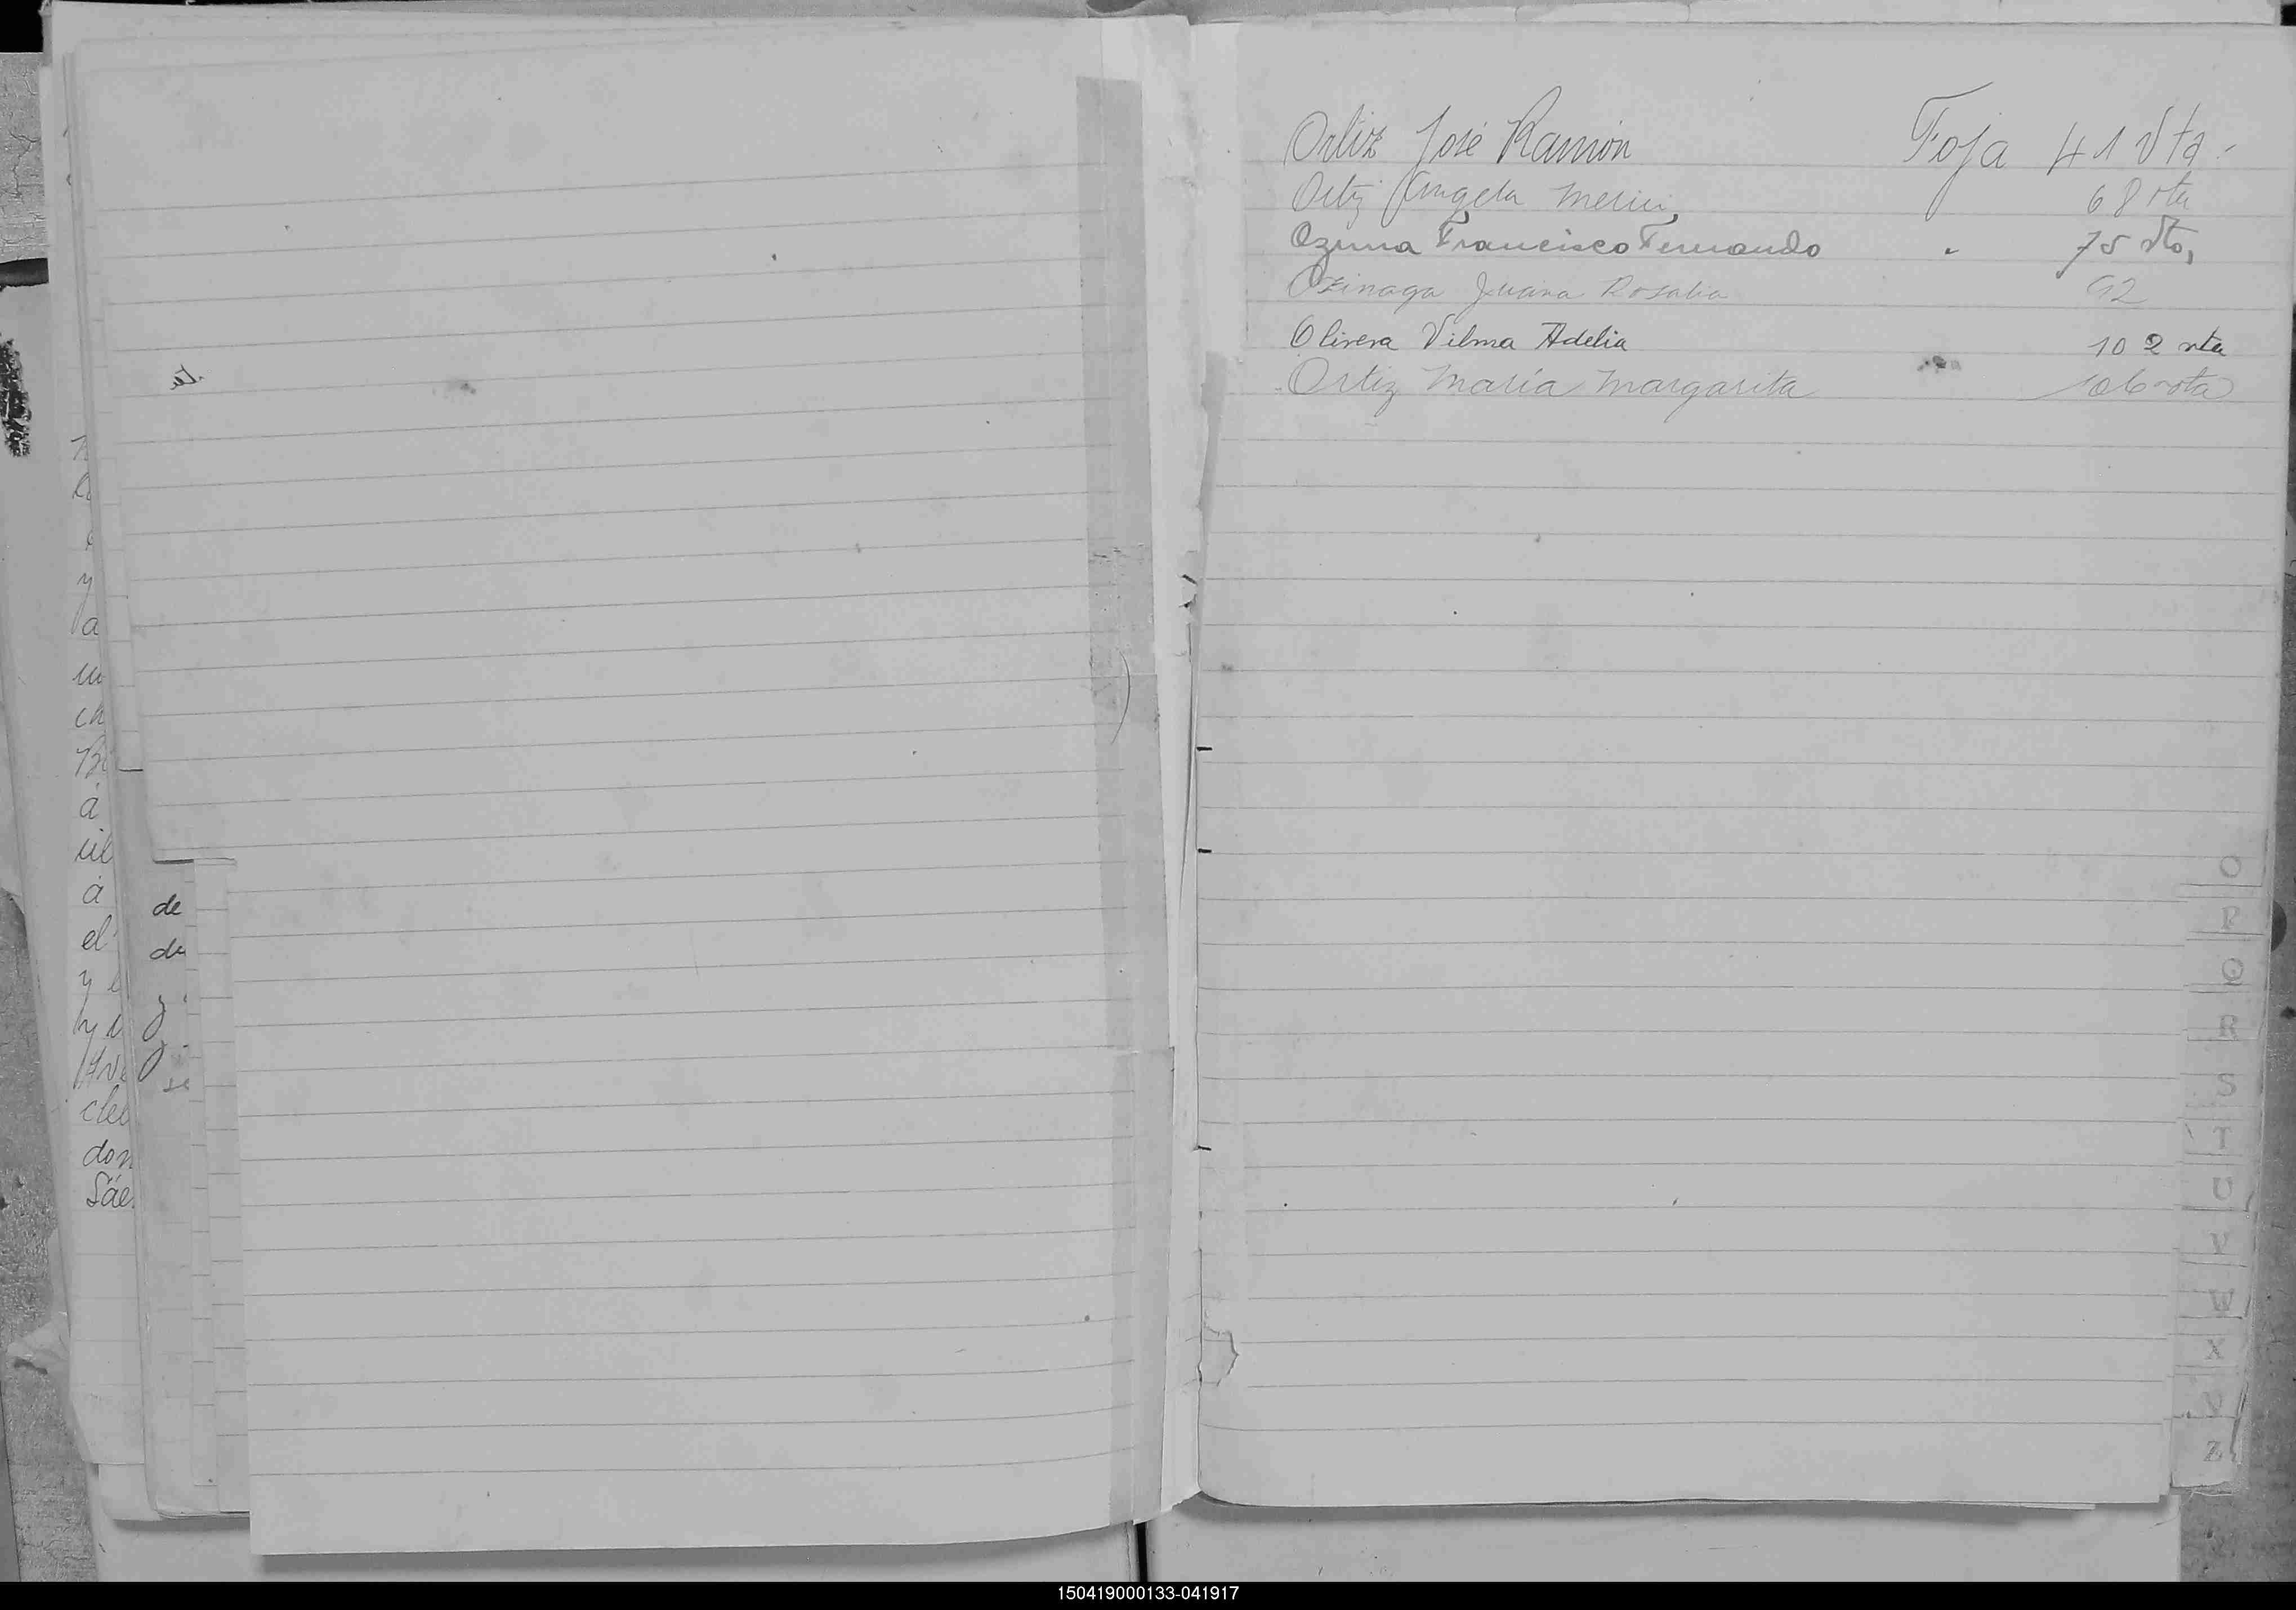 Ortiz José Ramón Foja 41 Vta.
Ortiz Angela 68 vta
Ozuna Francisco Fernando " 75 Vto,
Ozinaga Juana Rosalia 92
Olivera Vilma Adelia 102 vta
Ortiz María Margarita 106 vta
de
de
á
á
el
don
Sáe
O
P
Q
R
S
T
U
V
W
X
Z
150419000133-041917